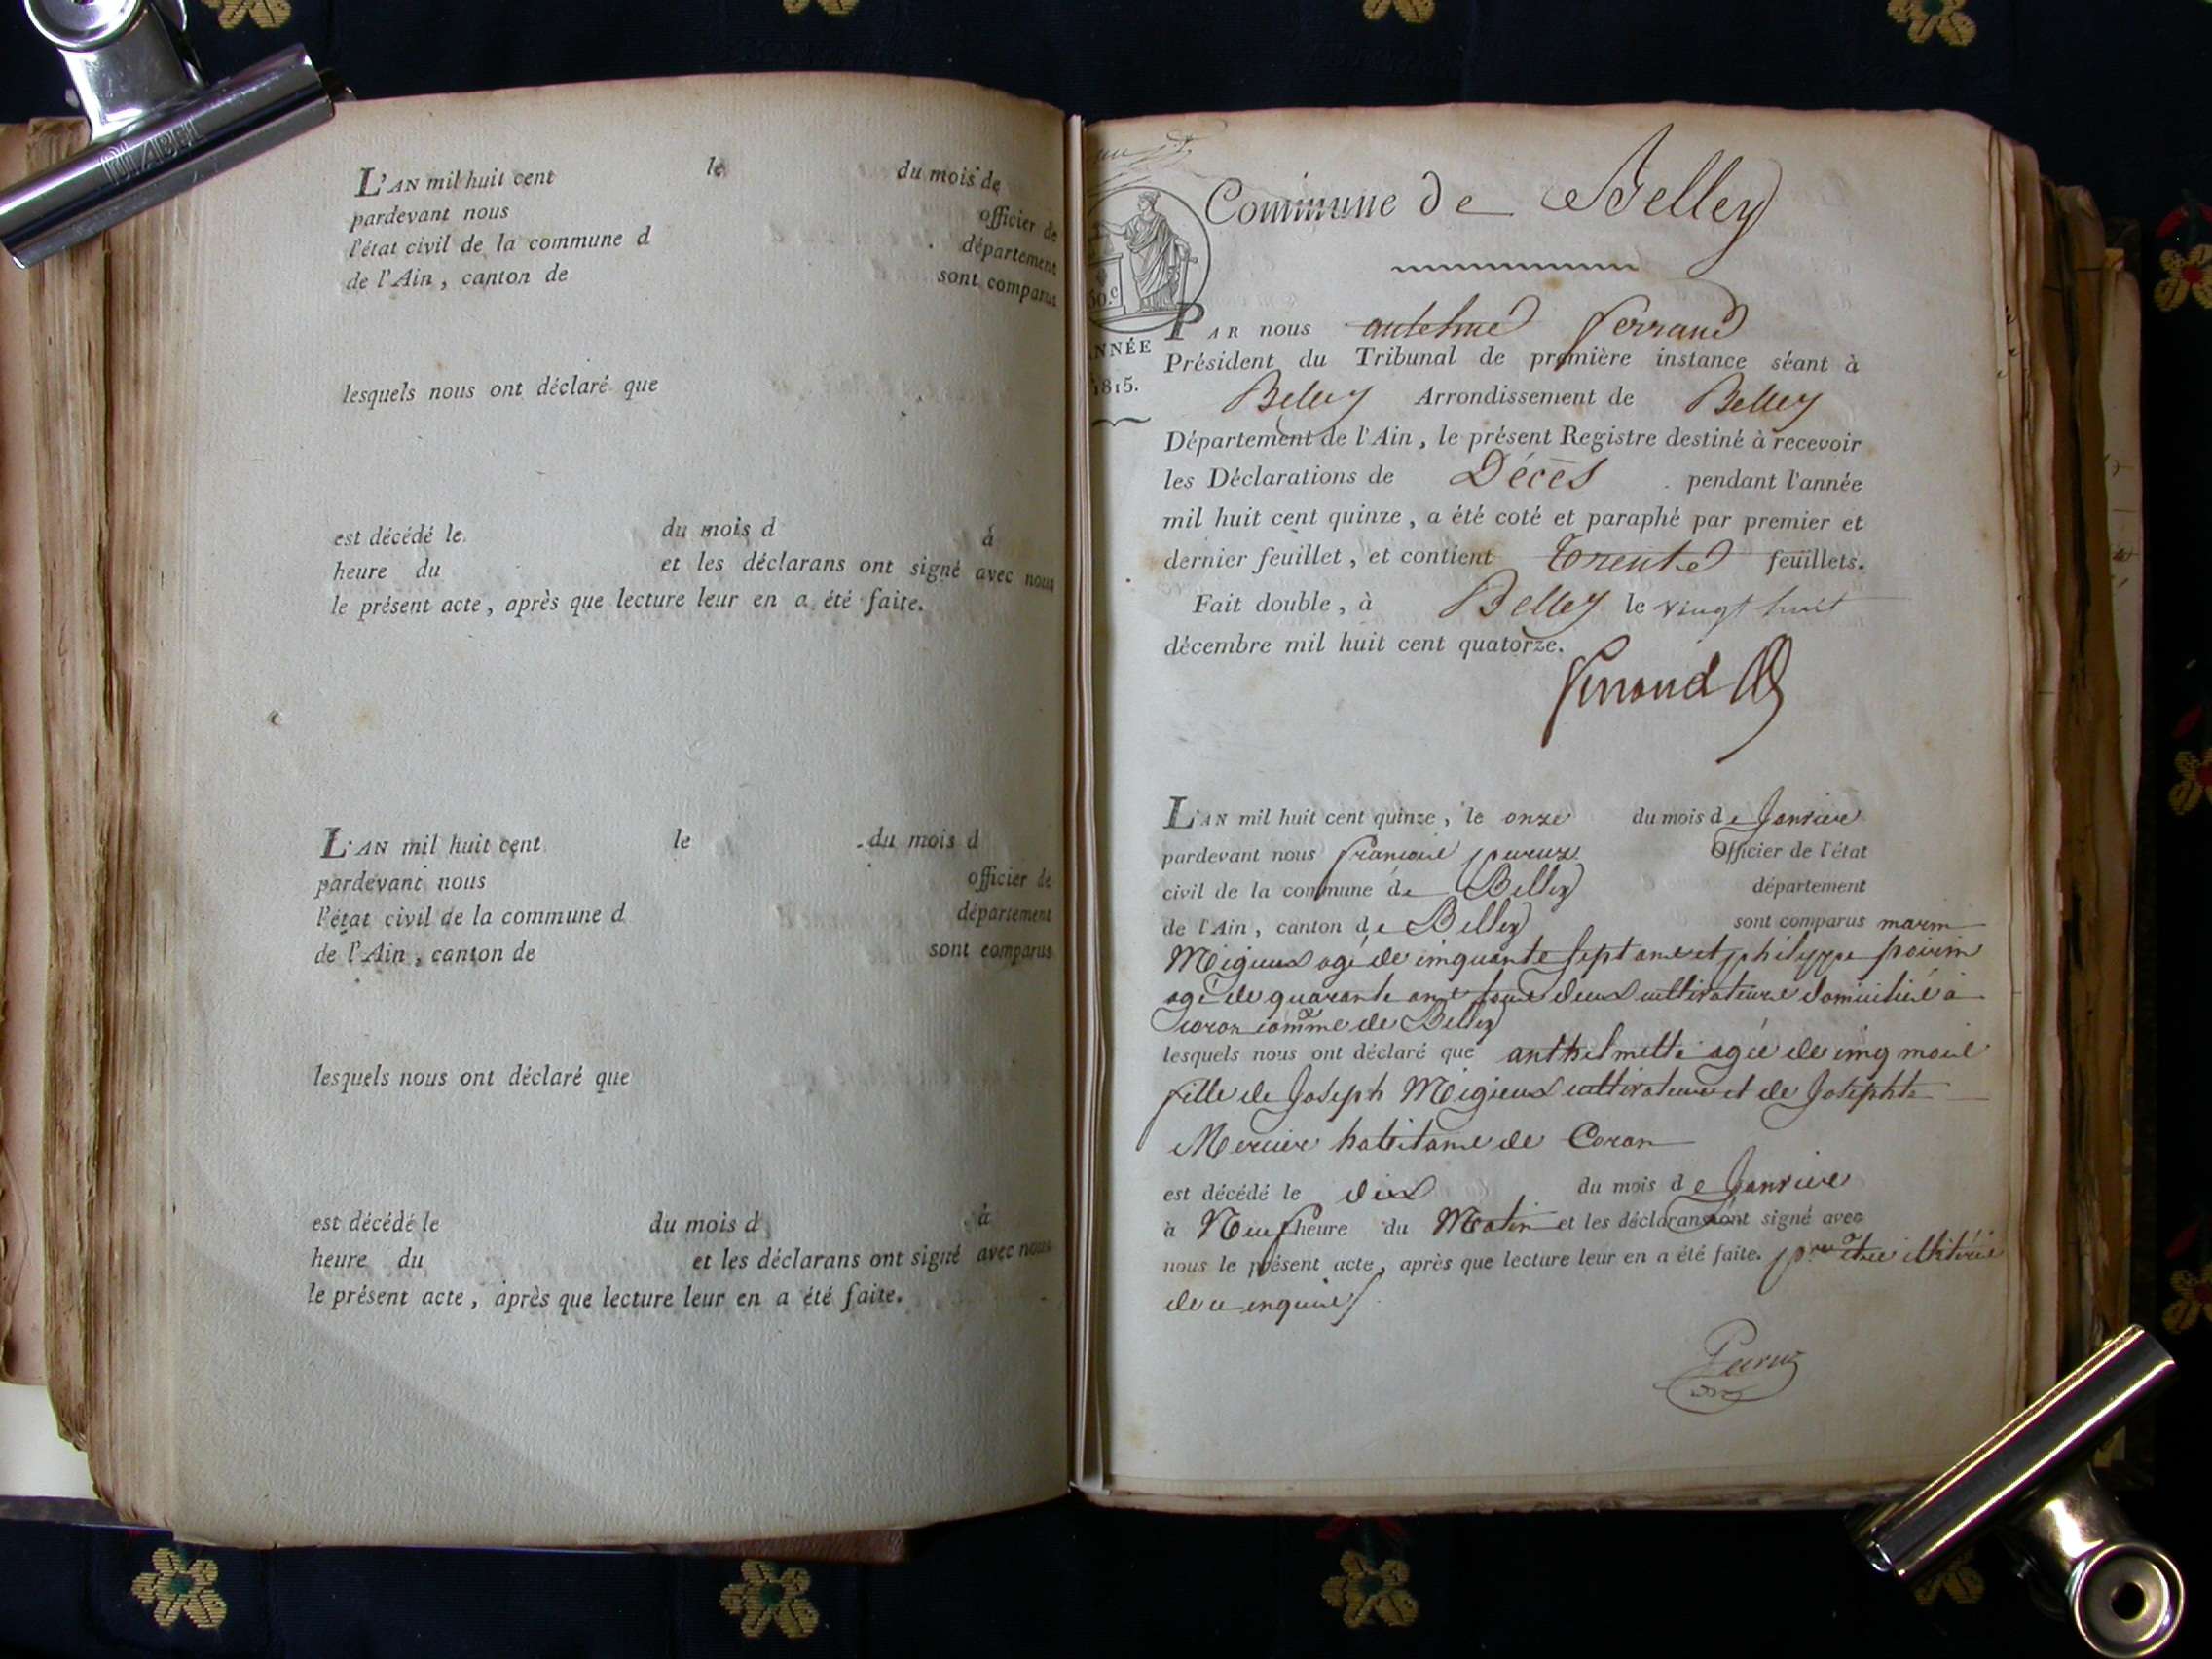 L'AN mil huit cent le du mois de
pardevant nous officier de
l'état civil de la commune d département
de l'Ain, canton de sont comparus
lesquels nous ont déclaré que
est décédé le du mois d à
heure du et les déclarans ont signé avec nous
le présent acte, après que lecture leur en a été faite.
L'AN mil huit cent le du mois d
pardevant nous officier de
l'état civil de la commune d département
de l'Ain, canton de sont comparus
lesquels nous ont déclaré que
est décédé le du mois d à
heure du et les déclarans ont signé avec nous
le présent acte, après que lecture leur en a été faite.
Commune de Belley
50.c
ANNÉE
1815.
PAR nous antelme ferrand
Président du Tribunal de première instance séant à
Belley Arrondissement de Belley
Département de l'Ain, le présent Registre destiné à recevoir
les Déclarations de Décès pendant l'année
mil huit cent quinze, a été coté et paraphé par premier et
dernier feuillet, et contient trente feuillets.
Fait double, à Belley le vingt huit
décembre mil huit cent quatorze.
ferrand
L'AN mil huit cent quinze, le onze du mois de Janvier
pardevant nous françois Officier de l'état
civil de la commune de Belley département
de l'Ain, canton de Belley sont comparus marin
Migieux agé de cinquante sept ans et philyppe poirin
agé de quarante ans tous deux cultivateurs domiciliés à
Coron comme de Belley
lesquels nous ont déclaré que anthelmette agée de cinq mois
fille de Joseph Migieux cultivateur et de Josephte
Mercier habitans de Coron
est décédé le dix du mois de Janvier
à Neuf heure du Matin et les déclarans ont signé avec
nous le présent acte, après que lecture leur en a été faite. illitérés
de ce enquis